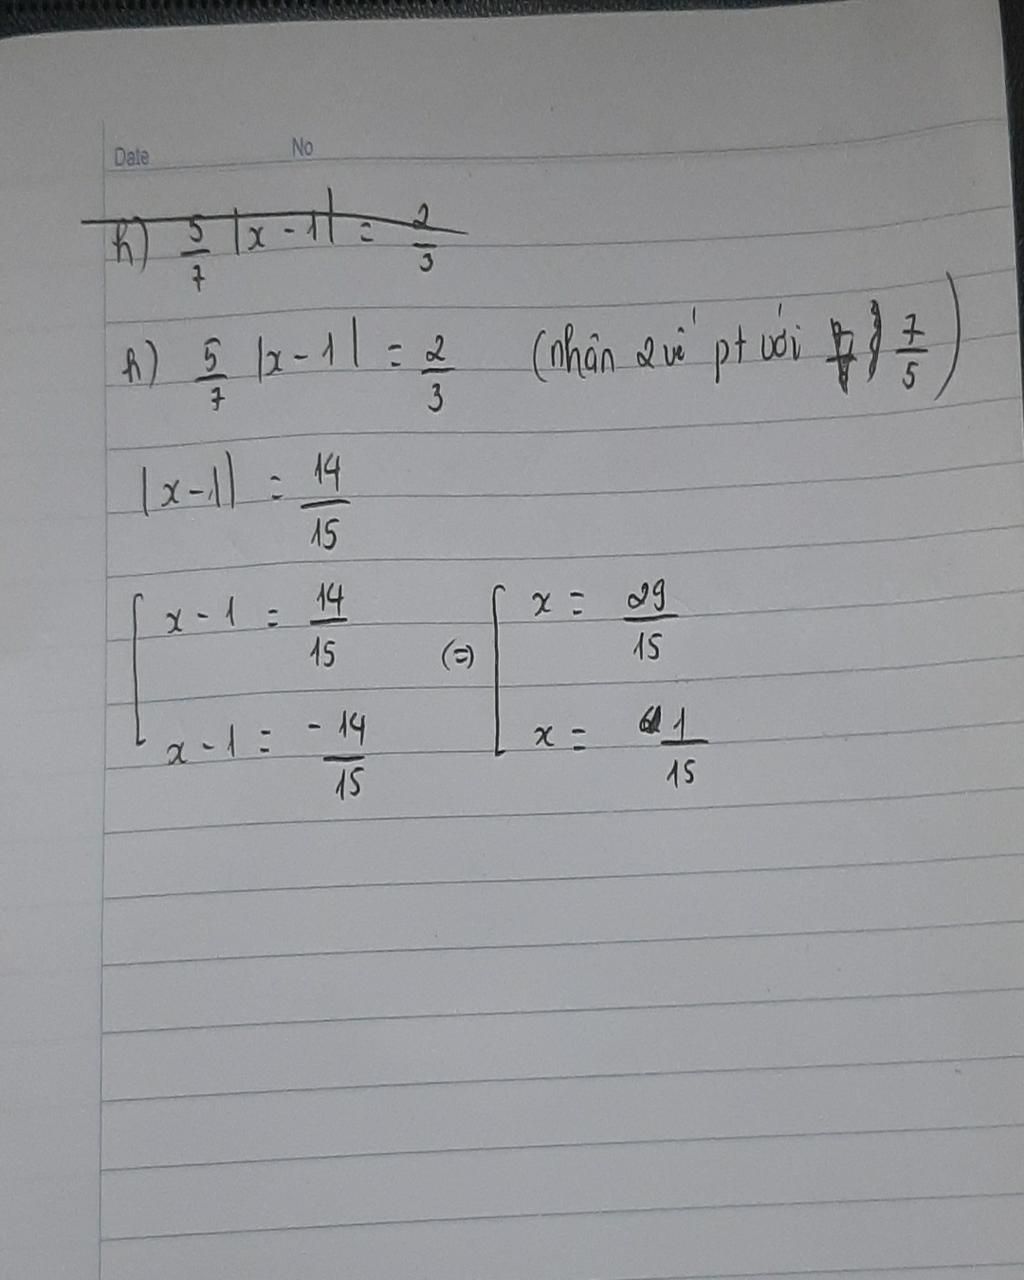 Date No
h) 5/7 |x - 1| = 2/3
h) 5/7 |x - 1| = 2/3 (nhân 2 vế pt với 7/5)
|x - 1| = 14/15
[ x - 1 = 14/15 (=) [ x = 29/15
x - 1 = -14/15 x = 1/15